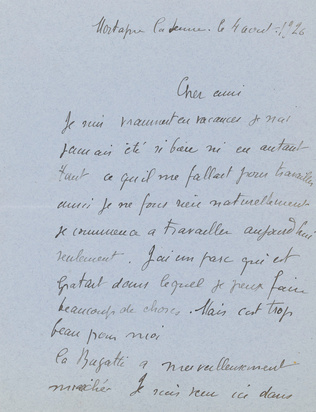 Mortagne le 4 avril 1926
Cher ami
Je suis vraiment en vacances je n'ai
jamais été si bien ni eu autant
tout ce qu'il me fallait pour travailler
aussi je ne fous rien naturellement
je commence a travailler aujourd'hui
seulement. J'ai un parc qui est
épatant dans lequel je peux faire
beaucoup de choses. Mais c'est trop
beau pour moi
la Bugatti a merveilleusement
marchée Je suis venu ici dans